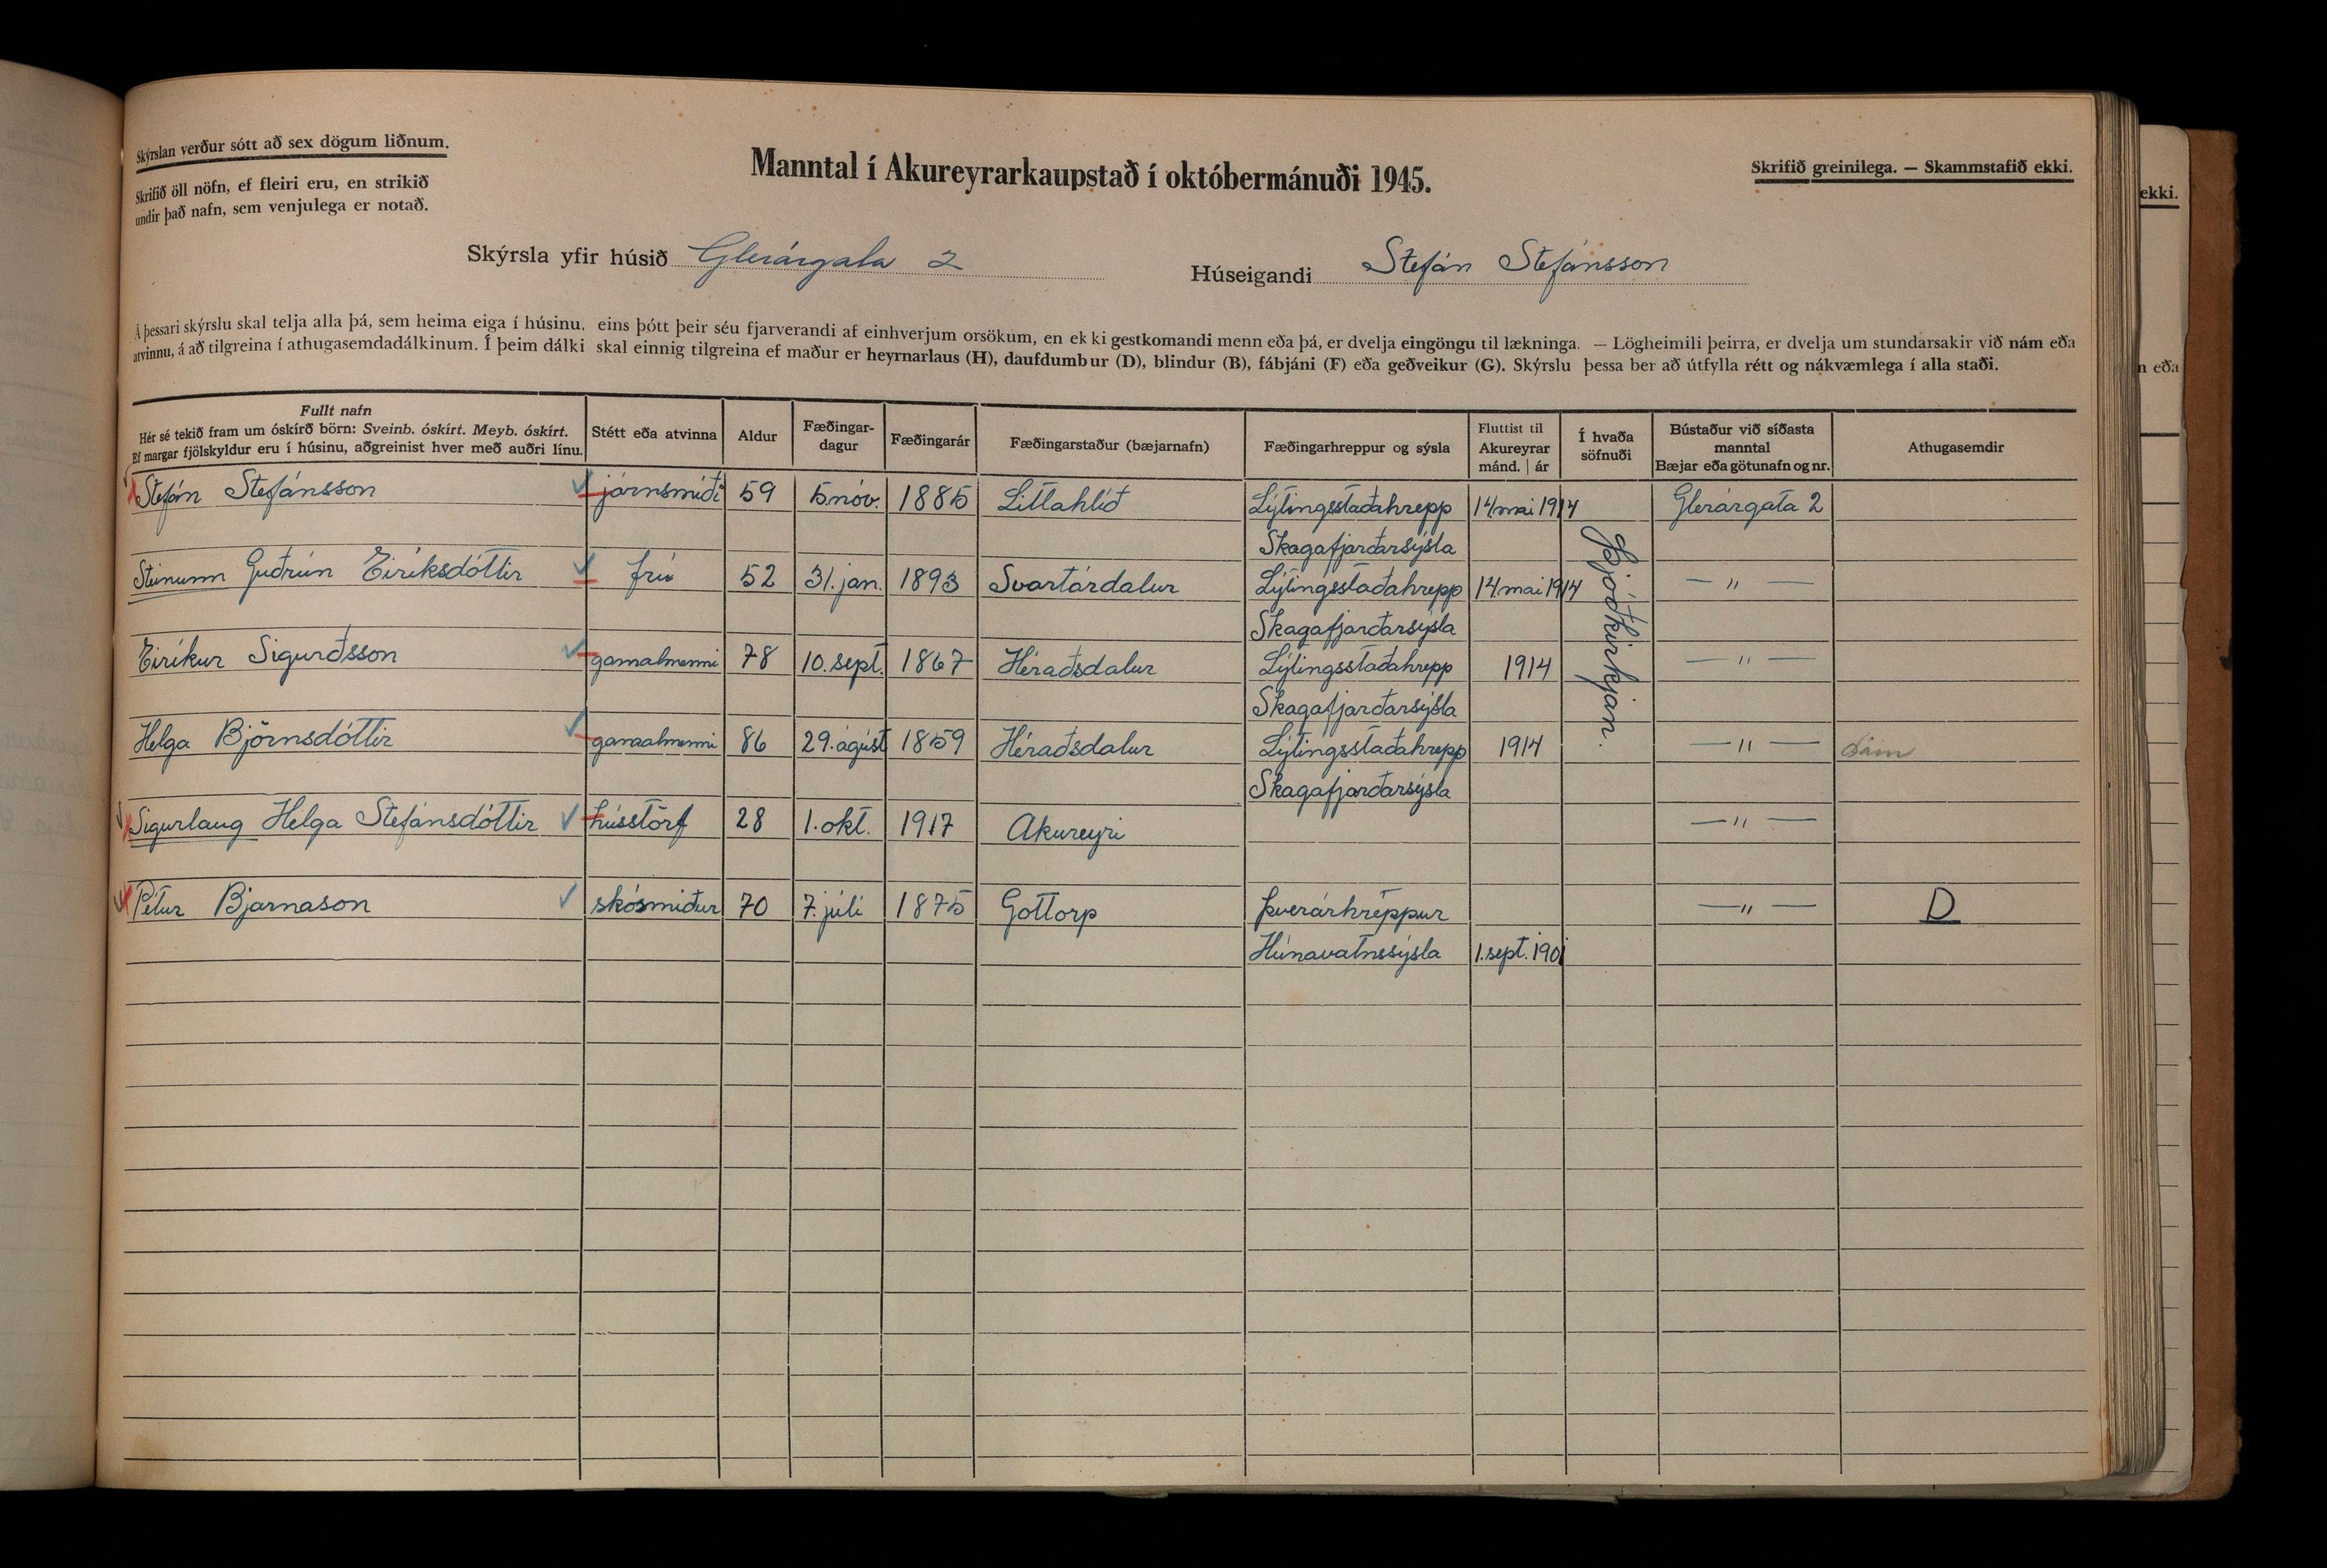 Skýrslan verður sótt að sex dögum liðnum.
Skrifið öll nöfn, ef fleiri eru, en strikið
undir það nafn, sem venjulega er notað.
Manntal í Akureyrarkaupstað í októbermánuði 1945.
Skrifið greinilega. — Skammstafið ekki.
ekki.
Skýrsla yfir húsið Glerárgata 2
Húseigandi Stefán Stefánsson
Á þessari skýrslu skal telja alla þá, sem heima eiga í húsinu, eins þótt þeir séu fjarverandi af einhverjum orsökum, en ekki gestkomandi menn eða þá, er dvelja eingöngu til lækninga. — Lögheimili þeirra, er dvelja um stundarsakir við nám eða
atvinnu, á að tilgreina í athugasemdadálkinum. Í þeim dálki skal einnig tilgreina ef maður er heyrnarlaus (H), daufdumbur (D), blindur (B), fábjáni (F) eða geðveikur (G). Skýrslu þessa ber að útfylla rétt og nákvæmlega í alla staði.
n eða
Fullt nafn
Hér sé tekið fram um óskírð börn: Sveinb. óskírt. Meyb. óskírt.
Ef margar fjölskyldur eru í húsinu, aðgreinist hver með auðri línu.
Stétt eða atvinna
Aldur
Fæðingar-
dagur
Fæðingarár
Fæðingarstaður (bæjarnafn)
Fæðingarhreppur og sýsla
Fluttist til
Akureyrar
mánd. | ár
Í hvaða
söfnuði
Bústaður við síðasta
manntal
Bæjar eða götunafn og nr.
Athugasemdir
Stefán Stefánsson járnsmiði 59 5. nóv. 1885 Litlahlíð Lýtingsstaðahrepp 14. mai 1914 Glerárgata 2
Skagafjarðarsýsla
Steinunn Guðrún Eiríksdóttir frú 52 31. jan. 1893 Svartárdalur Lýtingsstaðahrepp 14. mai 1914 — " —
Skagafjarðarsýsla
Eiríkur Sigurðsson gamalmenni 78 10. sept. 1867 Héraðsdalur Lýtingsstaðahrepp 1914 — " —
Skagafjarðarsýsla
Helga Björnsdóttir gamalmenni 86 29. ágúst 1859 Héraðsdalur Lýtingsstaðahrepp 1914 — " — dáin
Skagafjarðarsýsla
Þjóðkirkjan.
Sigurlaug Helga Stefánsdóttir hússtörf 28 1. okt. 1917 Akureyri — " —
Pétur Bjarnason skósmiður 70 7. júlí 1875 Gottorp Þverárhreppur — " — D
Húnavatnssýsla 1. sept. 1901